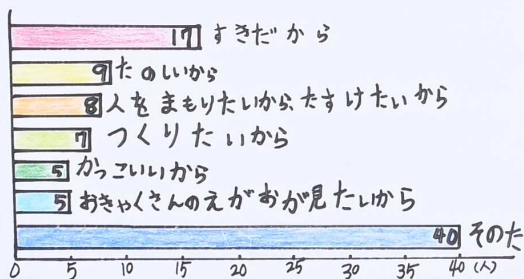 17 すきだから
9 たのしいから
8 人をまもりたいから、たすけたいから
7 つくりたいから
5 かっこいいから
5 おきゃくさんのえがおが見たいから
40 そのた
0 5 10 15 20 25 30 35 40 (人)